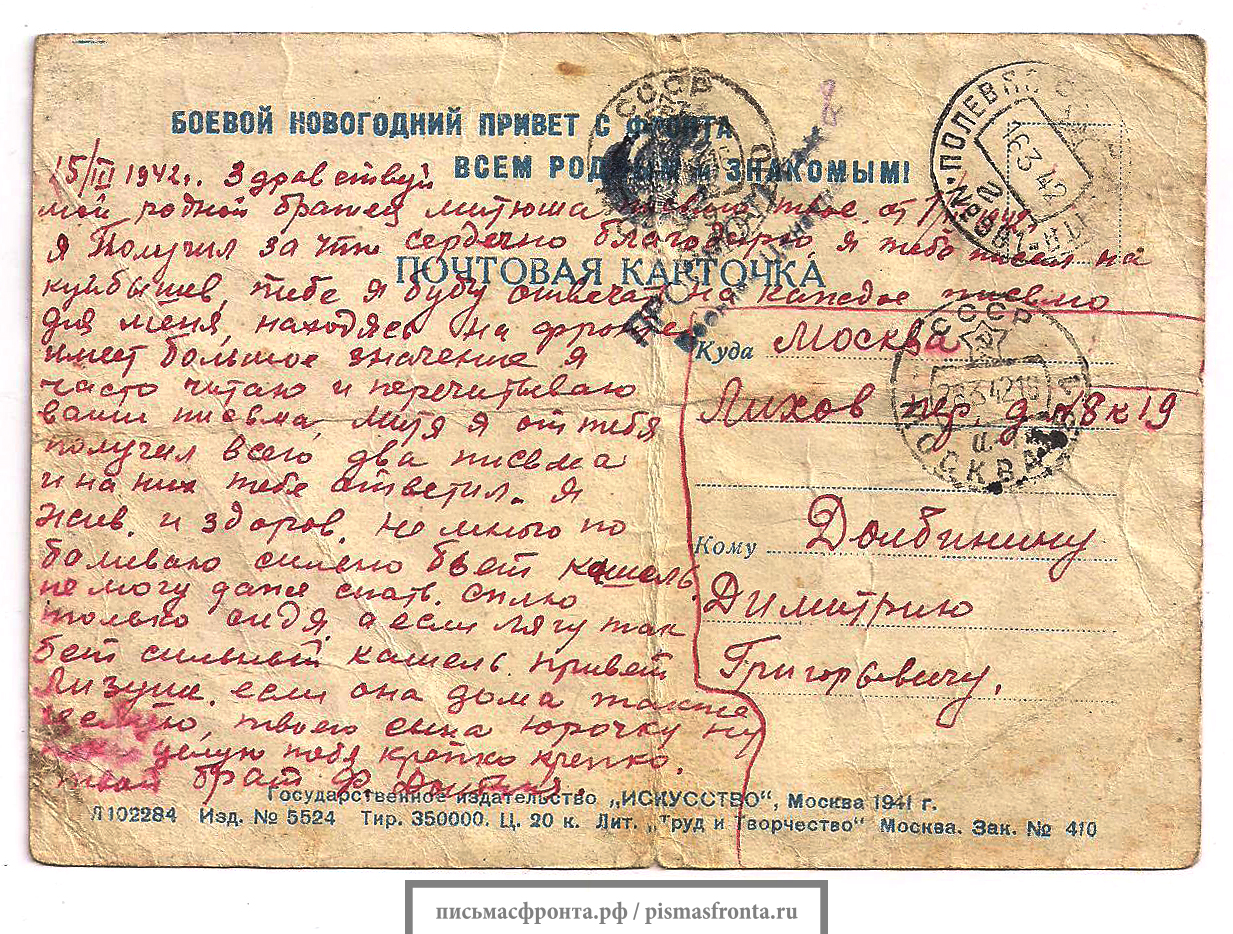 БОЕВОЙ НОВОГОДНИЙ ПРИВЕТ С ФРОНТА
ВСЕМ РОДНЫМ И ЗНАКОМЫМ!
15/III 1942г. Здравствуй
мой родной братец Митюша письмо твое от 1942г
я получил за что сердечно благодарю, я тебе писал на
куйбышев, тебе я буду отвечать на каждое письмо
ПОЧТОВАЯ КАРТОЧКА
для меня, находясь на фронте
имеет большое значение я
часто читаю и перечитываю
ваши письма, Митя я от тебя
получил всего два письма
и на них тебе ответил. Я
жив и здоров. не много по
балеваю сильно бьет кашель,
не могу даже спать. сплю
только сидя, а если лягу так
бет сильный кашель. привет
Лизуше. если она дома также
целую, твоего сына юрочку ну
целую тебя крепко крепко.
твой брат Ф. Долбинин.
Куда Москва
Лихов пер. д. №8 к 19
Кому Долбинину
Димитрию
Григорьевичу.
СССР
ПРОСМОТРЕНО
ПОЛЕВАЯ
16 3 42
СССР
28 3 42 16
МОСКВА
Государственное издательство „ИСКУССТВО“, Москва 1941 г.
Л102284 Изд. № 5524 Тир. 350000. Ц. 20 к. Лит. „Труд и Творчество“ Москва. Зак. № 410
письмасфронта.рф / pismasfronta.ru